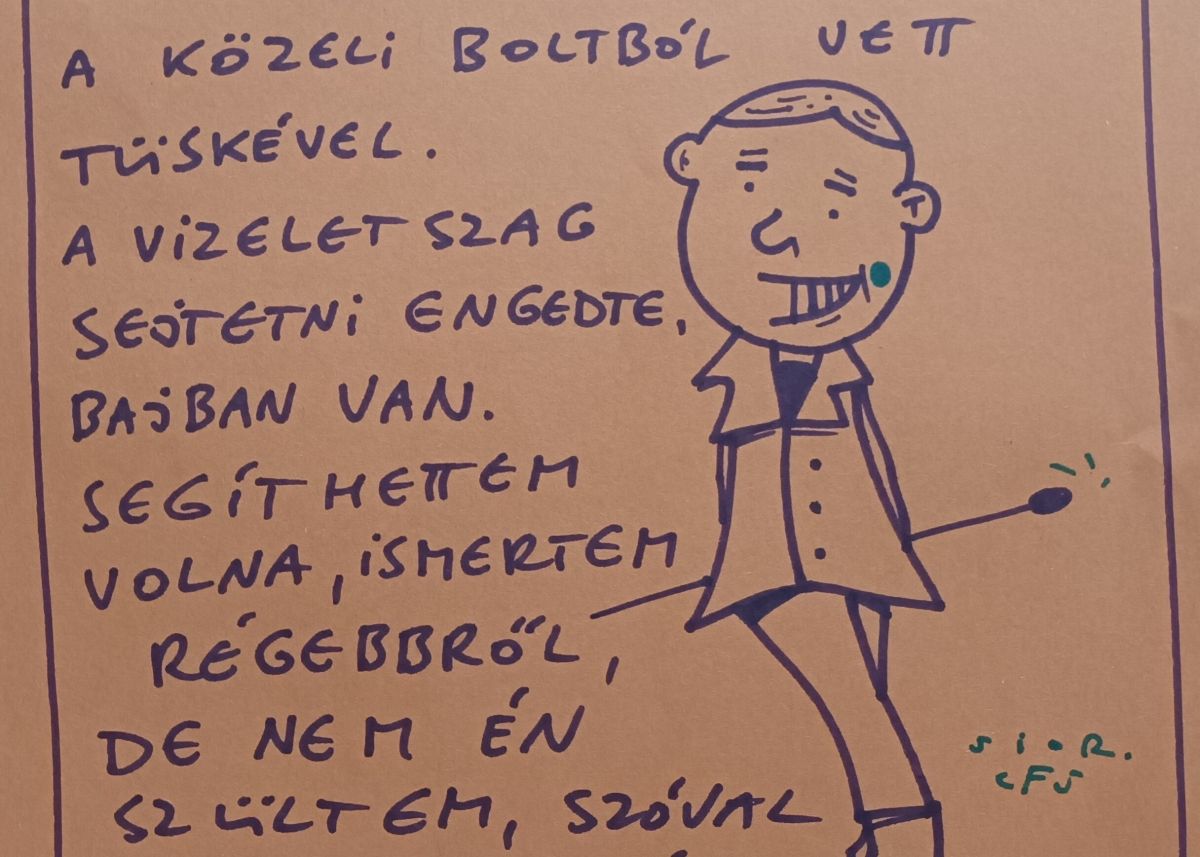 A KÖZELI BOLTBÓL VETT
TÜSKÉVEL.
A VIZELETSZAG
SEJTETNI ENGEDTE,
BAJBAN VAN.
SEGÍTHETTEM
VOLNA, ISMERTEM
RÉGEBBRŐL,
DE NEM ÉN
SZÜLTEM, SZÓVAL
S I O R.
CFS